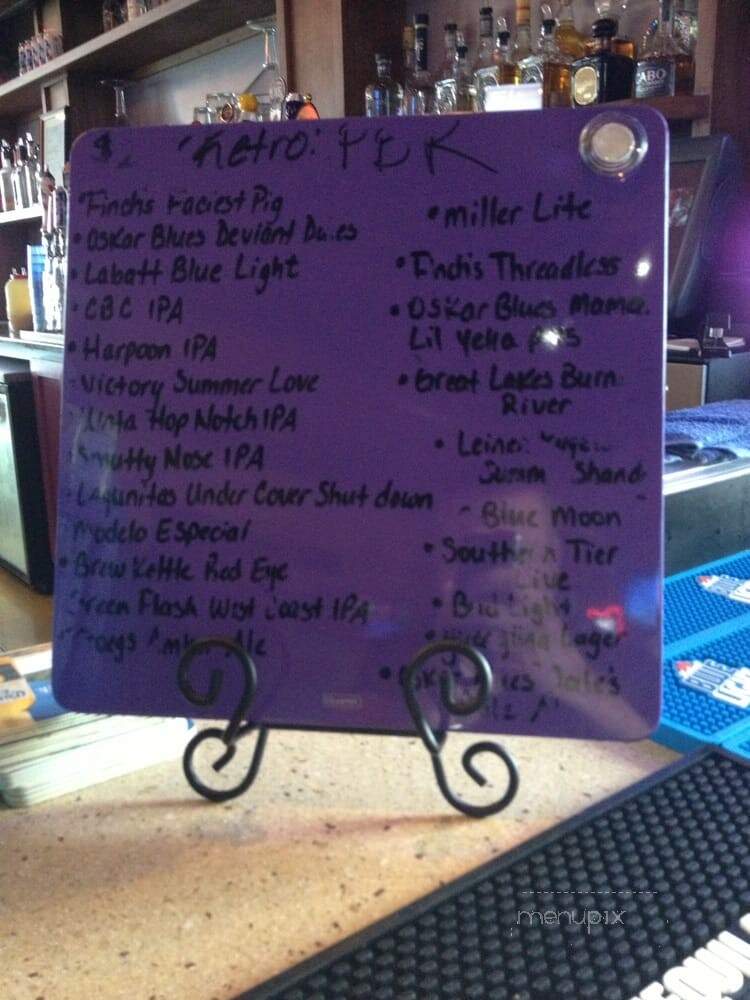 $2 Retro: PBR
• Finch's Faciest Pig
• Oskar Blues Deviant Dales
• Labatt Blue Light
• CBC IPA
• Harpoon IPA
• Victory Summer Love
Uinta Hop Notch IPA
Smutty Nose IPA
Lagunitas Under Cover Shut down
Modelo Especial
• Brew Kettle Red Eye
Green Flash West Coast IPA
Troegs Amber Ale
• Miller Lite
• Finch's Threadless
• Oskar Blues Mama
Lil Yella Pils
• Great Lakes Burn
River
• Leinen
Summ Shand
Blue Moon
• Southern Tier
Live
• Bud Light
• Yuengling Lager
• Oskar Blues Dale's
CABO
menupix